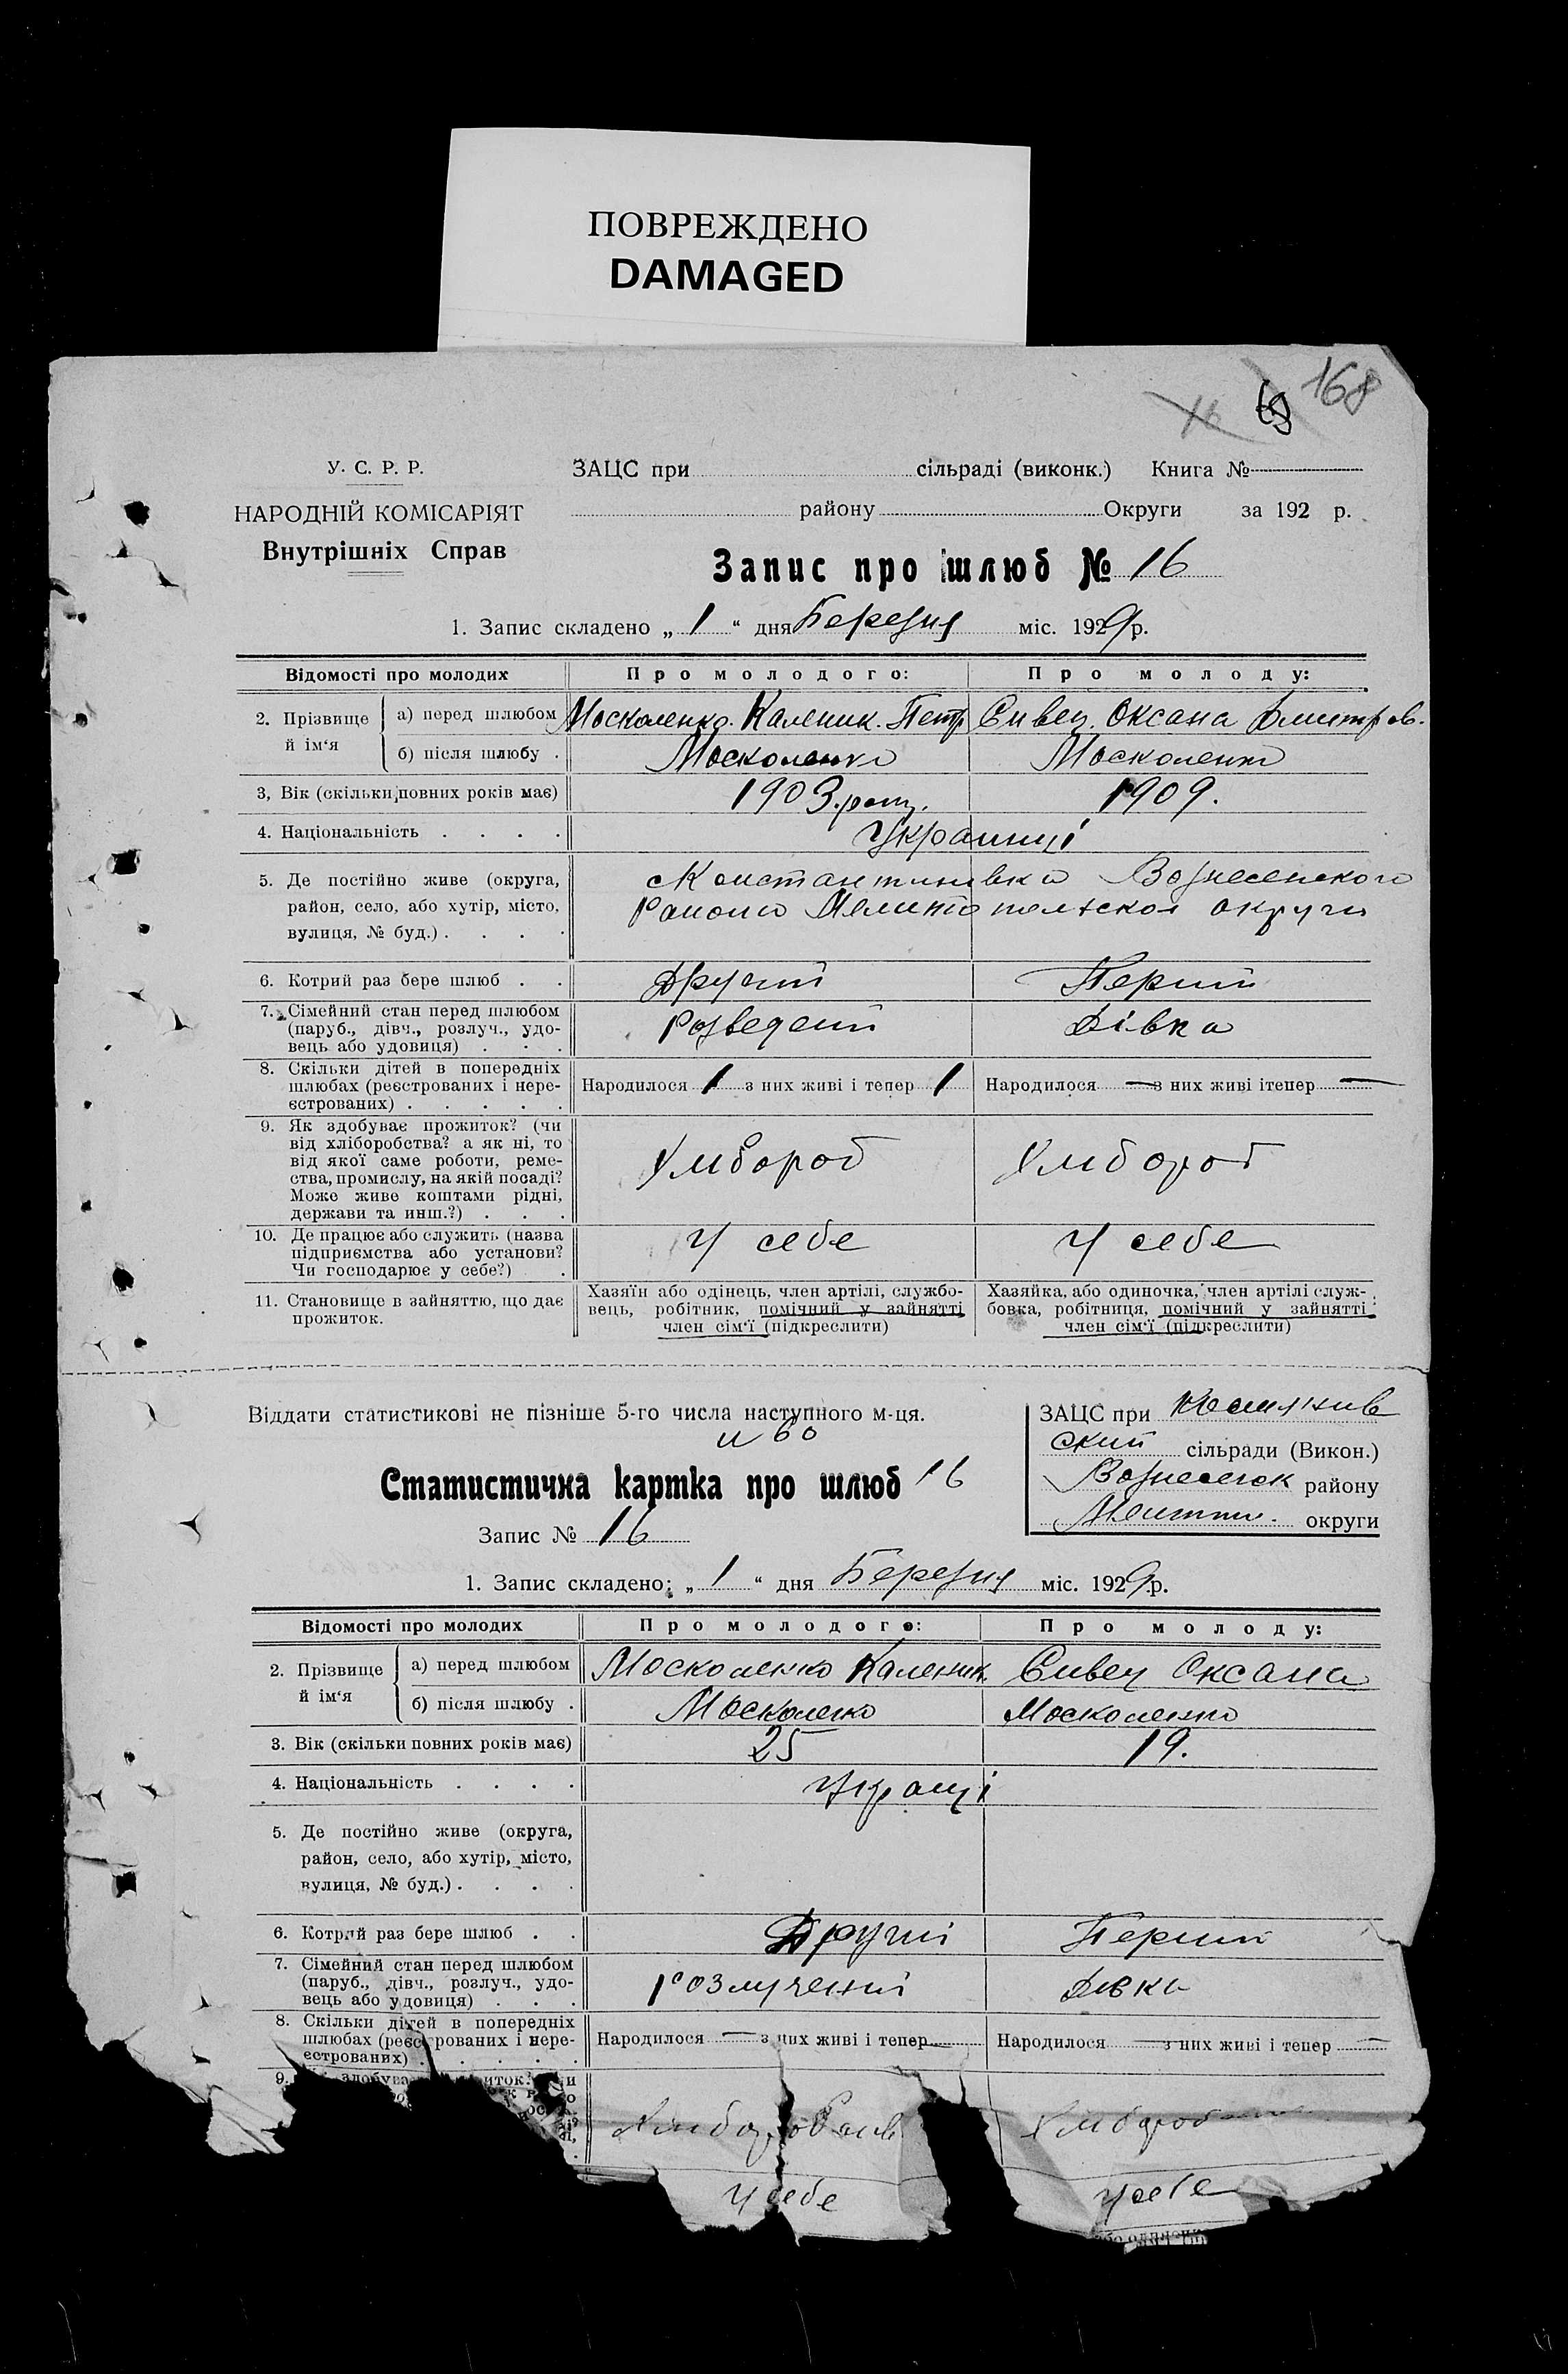 ПОВРЕЖДЕНО
DAMAGED
168
16
У. С. Р. Р.
НАРОДНІЙ КОМІСАРІЯТ
Внутрішніх Справ
ЗАЦС при сільраді (виконк.) Книга №
району Округи за 192 р.
Запис про шлюб № 16
1. Запис складено „ 1 “ дня Березня міс. 1929 р.
Відомості про молодих Про молодого: Про молоду:
2. Прізвище й ім‘я
а) перед шлюбом Москаленко Каленик Петр Сивец Оксана Дмитров.
б) після шлюбу . Москаленко Москаленко
3, Вік (скільки повних років має) 1903 року. 1909.
4. Національність . . . . Українці
5. Де постійно живе (округа, с Константинівка Вознесенского
район, село, або хутір, місто, Району Мелитопольской округи
вулиця, № буд.) . . . .
6. Котрий раз бере шлюб . . Другий Перший
7. Сімейний стан перед шлюбом
(паруб., дівч., розлуч., удо- Розведений Дівка
вець або удовиця) . . .
8. Скільки дітей в попередніх
шлюбах (реєстрованих і нере- Народилося 1 з них живі і тепер 1 Народилося — з них живі ітепер —
єстрованих) . . . . .
9. Як здобуває прожиток? (чи
від хліборобства? а як ні, то
від якої саме роботи, реме- Хлібороб Хлібороб
ства, промислу, на якій посаді?
Може живе коштами рідні,
держави та инш.?) . . .
10. Де працює або служить (назва У себе У себе
підприємства або установи?
Чи господарює у себе?) .
11. Становище в зайняттю, що дає
прожиток.
Хазяїн або одінець, член артілі, службо-
вець, робітник, помічний у зайнятті
член сім‘ї (підкреслити)
Хазяйка, або одиночка, член артілі служ-
бовка, робітниця, помічний у зайнятті
член сім‘ї (підкреслити)
Віддати статистикові не пізніше 5-го числа наступного м-ця.
Статистична картка про шлюб 16
Запис № 16
ЗАЦС при
ский сільради (Викон.)
Вознесенск району
округи
1. Запис складено: „ 1 “ дня Березня міс. 1929 р.
Відомості про молодих Про молодого: Про молоду:
2. Прізвище й ім‘я
а) перед шлюбом Москаленко Каленик Сивец Оксана
б) після шлюбу . Москаленко Москаленко
3. Вік (скільки повних років має) 25 19.
4. Національність . . . .
5. Де постійно живе (округа,
район, село, або хутір, місто,
вулиця, № буд.) . . . .
6. Котрий раз бере шлюб . . Другий Перший
7. Сімейний стан перед шлюбом
(паруб., дівч., розлуч., удо- Розлучений Дівка
вець або удовиця) . . .
8. Скільки дітей в попередніх
шлюбах (реєстрованих і нере- Народилося — з них живі і тепер — Народилося — з них живі і тепер —
єстрованих) . . . . .
9.
Хлібороб
У себе У себе